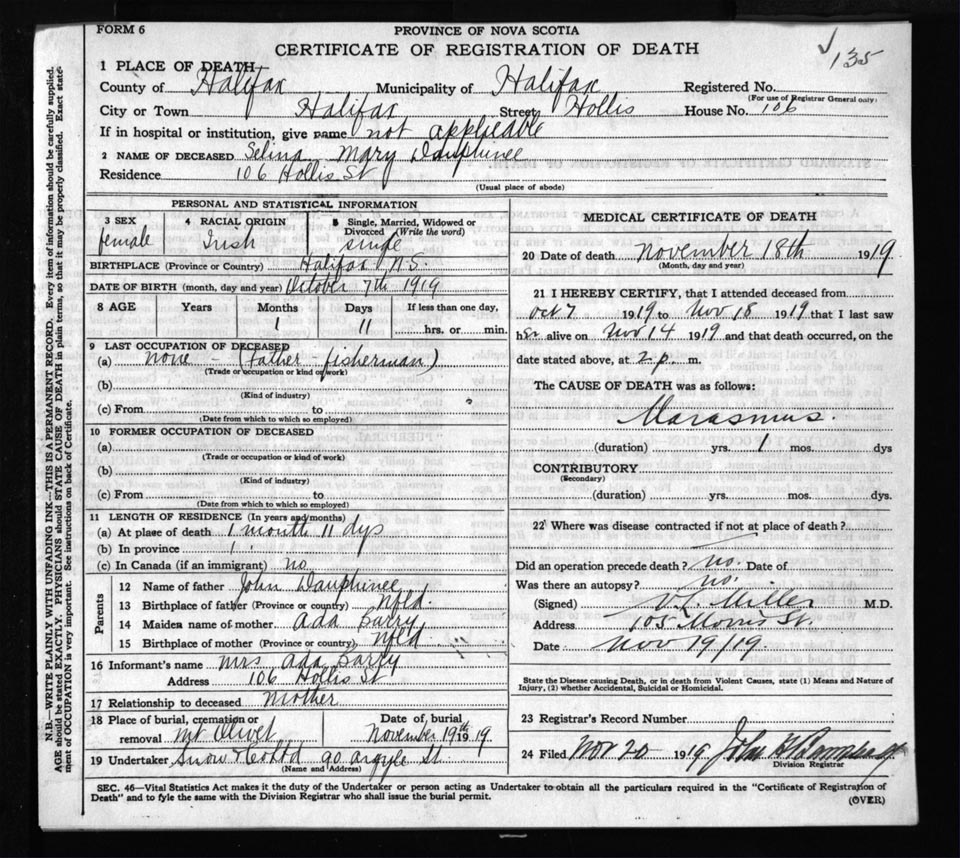 FORM 6
PROVINCE OF NOVA SCOTIA
CERTIFICATE OF REGISTRATION OF DEATH
✓135
1 PLACE OF DEATH
County of Halifax Municipality of Halifax Registered No.
(For use of Registrar General only)
City or Town Halifax Street Hollis House No. 106
If in hospital or institution, give name not applicable
2 NAME OF DECEASED Selina Mary Dauphinee
Residence 106 Hollis St
(Usual place of abode)
PERSONAL AND STATISTICAL INFORMATION
3 SEX 4 RACIAL ORIGIN 5 Single, Married, Widowed or Divorced (Write the word)
female Irish single
BIRTHPLACE (Province or Country) Halifax N.S.
DATE OF BIRTH (month, day and year) October 7th 1919
8 AGE Years Months Days If less than one day,
1 11 hrs. or min.
9 LAST OCCUPATION OF DECEASED
(a) none - (father - fisherman)
(Trade or occupation or kind of work)
(b)
(Kind of industry)
(c) From to
(Date from which to which so employed)
10 FORMER OCCUPATION OF DECEASED
(a)
(Trade or occupation or kind of work)
(b)
(Kind of industry)
(c) From to
(Date from which to which so employed)
11 LENGTH OF RESIDENCE (In years and months)
(a) At place of death 1 month 11 dys
(b) In province 1
(c) In Canada (if an immigrant) no
Parents
12 Name of father John Dauphinee
13 Birthplace of father (Province or country) Nfld.
14 Maiden name of mother Ada Barry
15 Birthplace of mother (Province or country) Nfld
16 Informant's name Mrs Ada Barry
Address 106 Hollis St
17 Relationship to deceased Mother
18 Place of burial, cremation or removal Mt Olivet Date of burial November 19th 1919
19 Undertaker Snow & Co Ltd 90 Argyle St.
(Name and Address)
MEDICAL CERTIFICATE OF DEATH
20 Date of death November 18th 1919
(Month, day and year)
21 I HEREBY CERTIFY, that I attended deceased from
Oct 7 1919 to Nov 18 1919 that I last saw
her alive on Nov 14 1919 and that death occurred, on
date stated above, at 2 p. m.
The CAUSE OF DEATH was as follows:
Marasmus.
(duration) yrs. 1 mos. dys
CONTRIBUTORY
(Secondary)
(duration) yrs. mos. dys.
22 Where was disease contracted if not at place of death?
Did an operation precede death? no. Date of
Was there an autopsy? no.
(Signed) V.L. Miller M.D.
Address 105 Morris St.
Date Nov 19/19.
State the Disease causing Death, or in death from Violent Causes, state (1) Means and Nature of
Injury, (2) whether Accidental, Suicidal or Homicidal.
23 Registrar's Record Number
24 Filed Nov 20 1919 John
Division Registrar
SEC. 46—Vital Statistics Act makes it the duty of the Undertaker or person acting as Undertaker to obtain all the particulars required in the "Certificate of Registration of
Death" and to fyle the same with the Division Registrar who shall issue the burial permit.
(OVER)
N.B.—WRITE PLAINLY WITH UNFADING INK—THIS IS A PERMANENT RECORD. Every item of information should be carefully supplied.
AGE should be stated EXACTLY. PHYSICIANS should STATE CAUSE OF DEATH in plain terms, so that it may be properly classified. Exact state-
ment of OCCUPATION is very important. See instructions on back of Certificate.